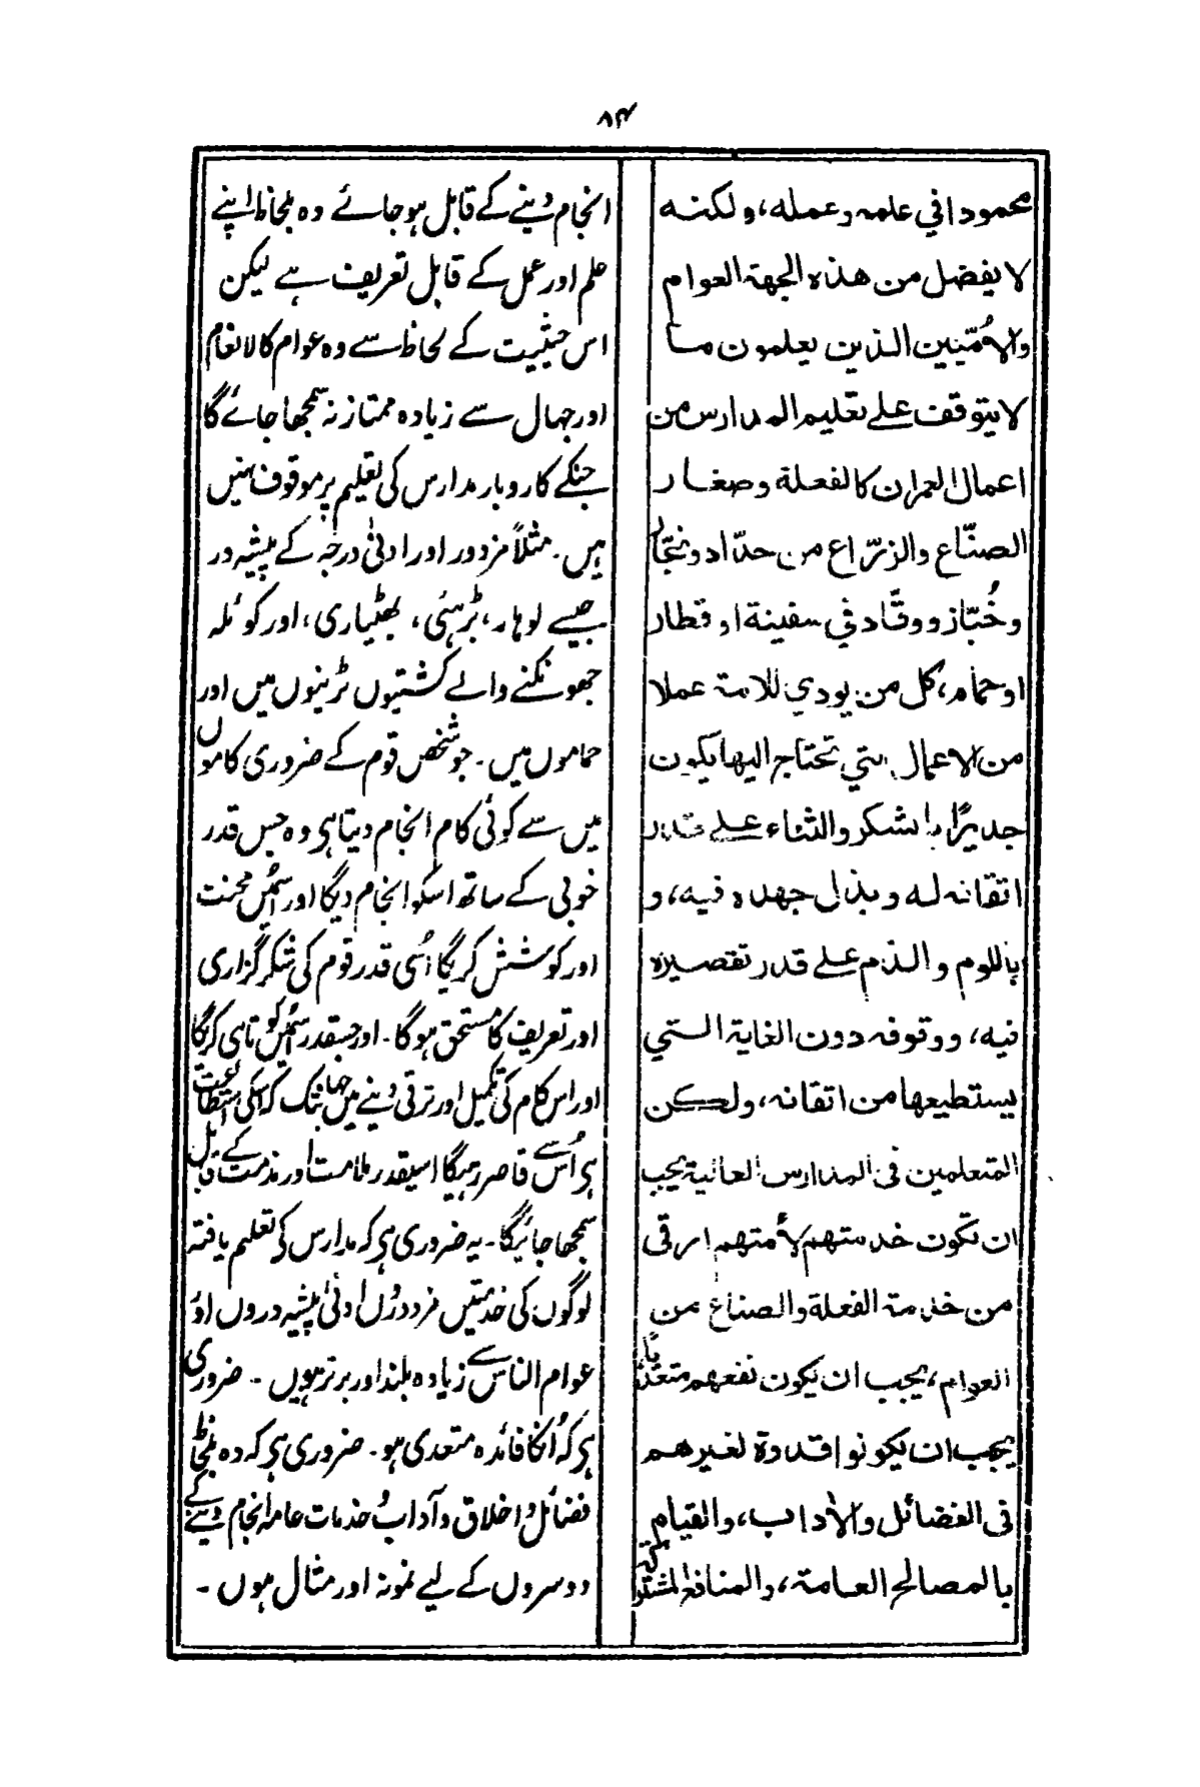 ۸۴
محمودا في علمه وعمله، ولكنه
لا يفضل من هذه الجهة العوام
والأمّيين الذين يعلمون ما
لا يتوقف على تعليم المدارس من
اعمال العمران كالفعلة وصغار
الصنّاع والزرّاع من حدّاد ونجّار
وخُبّاز ووقّاد في سفينة او قطار
او حمام، كل من يودي للامة عملا
من الاعمال التي تحتاج اليها يكون
جديرًا بالشكر والثناء على قدر
اتقانه له وبذل جهده فيه، و
باللوم والذم على قدر تقصيره
فيه، ووقوفه دون الغاية التي
يستطيعها من اتقانه، ولكن
المتعلمين فى المدارس العالية يجب
ان تكون خدمتهم لأمتهم ارقى
من خدمة الفعلة والصناع من
العوام، يجب ان يكون نفعهم متعديًا
يجب ان يكونوا قدوة لغيرهم
فى الفضائل والأداب، والقيام
بالمصالح العامة، والمنافع المشتركة
انجام دینے کے قابل ہو جائے وہ بلحاظ اپنے
علم اور عمل کے قابل تعریف ہے لیکن
اس حیثیت کے لحاظ سے وہ عوام کالانعام
اور جہال سے زیادہ ممتاز نہ سمجھا جائے گا
جنکے کاروبار مدارس کی تعلیم پر موقوف نہیں
ہیں۔ مثلاً مزدور اور ادنیٰ درجہ کے پیشہ ور
جیسے لوہار، بڑہئی، بھٹیاری، اور کوئلہ
جھونکنے والے کشتیوں ٹرینوں میں اور
حماموں میں۔ جو شخص قوم کے ضروری کاموں
میں سے کوئی کام انجام دیتا ہی وہ جس قدر
خوبی کے ساتھ اسکو انجام دیگا اور اسمیں محنت
اور کوشش کریگا اُسی قدر قوم کی شکر گزاری
اور تعریف کا مستحق ہوگا۔ اور جسقدر اسمیں کوتاہی کریگا
اور اس کام کی تکمیل اور ترقی دینے میں جہانتک کہ اسکی استطاعت
ہی اُس سے قاصر رہیگا اسیقدر ملامت اور مذمت کے قابل
سمجھا جائیگا۔ یہ ضروری ہی کہ مدارس کی تعلیم یافتہ
لوگوں کی خدمتیں مزدوروں ادنیٰ پیشہ دروں اور
عوام الناس سے زیادہ بلند اور برتر ہوں۔ ضروری
ہی کہ اُنکا فائدہ متعدی ہو۔ ضروری ہی کہ وہ بلحاظ
فضائل و اخلاق و آداب و خدمات عامہ انجام دینے کے
دوسروں کے لیے نمونہ اور مثال ہوں۔